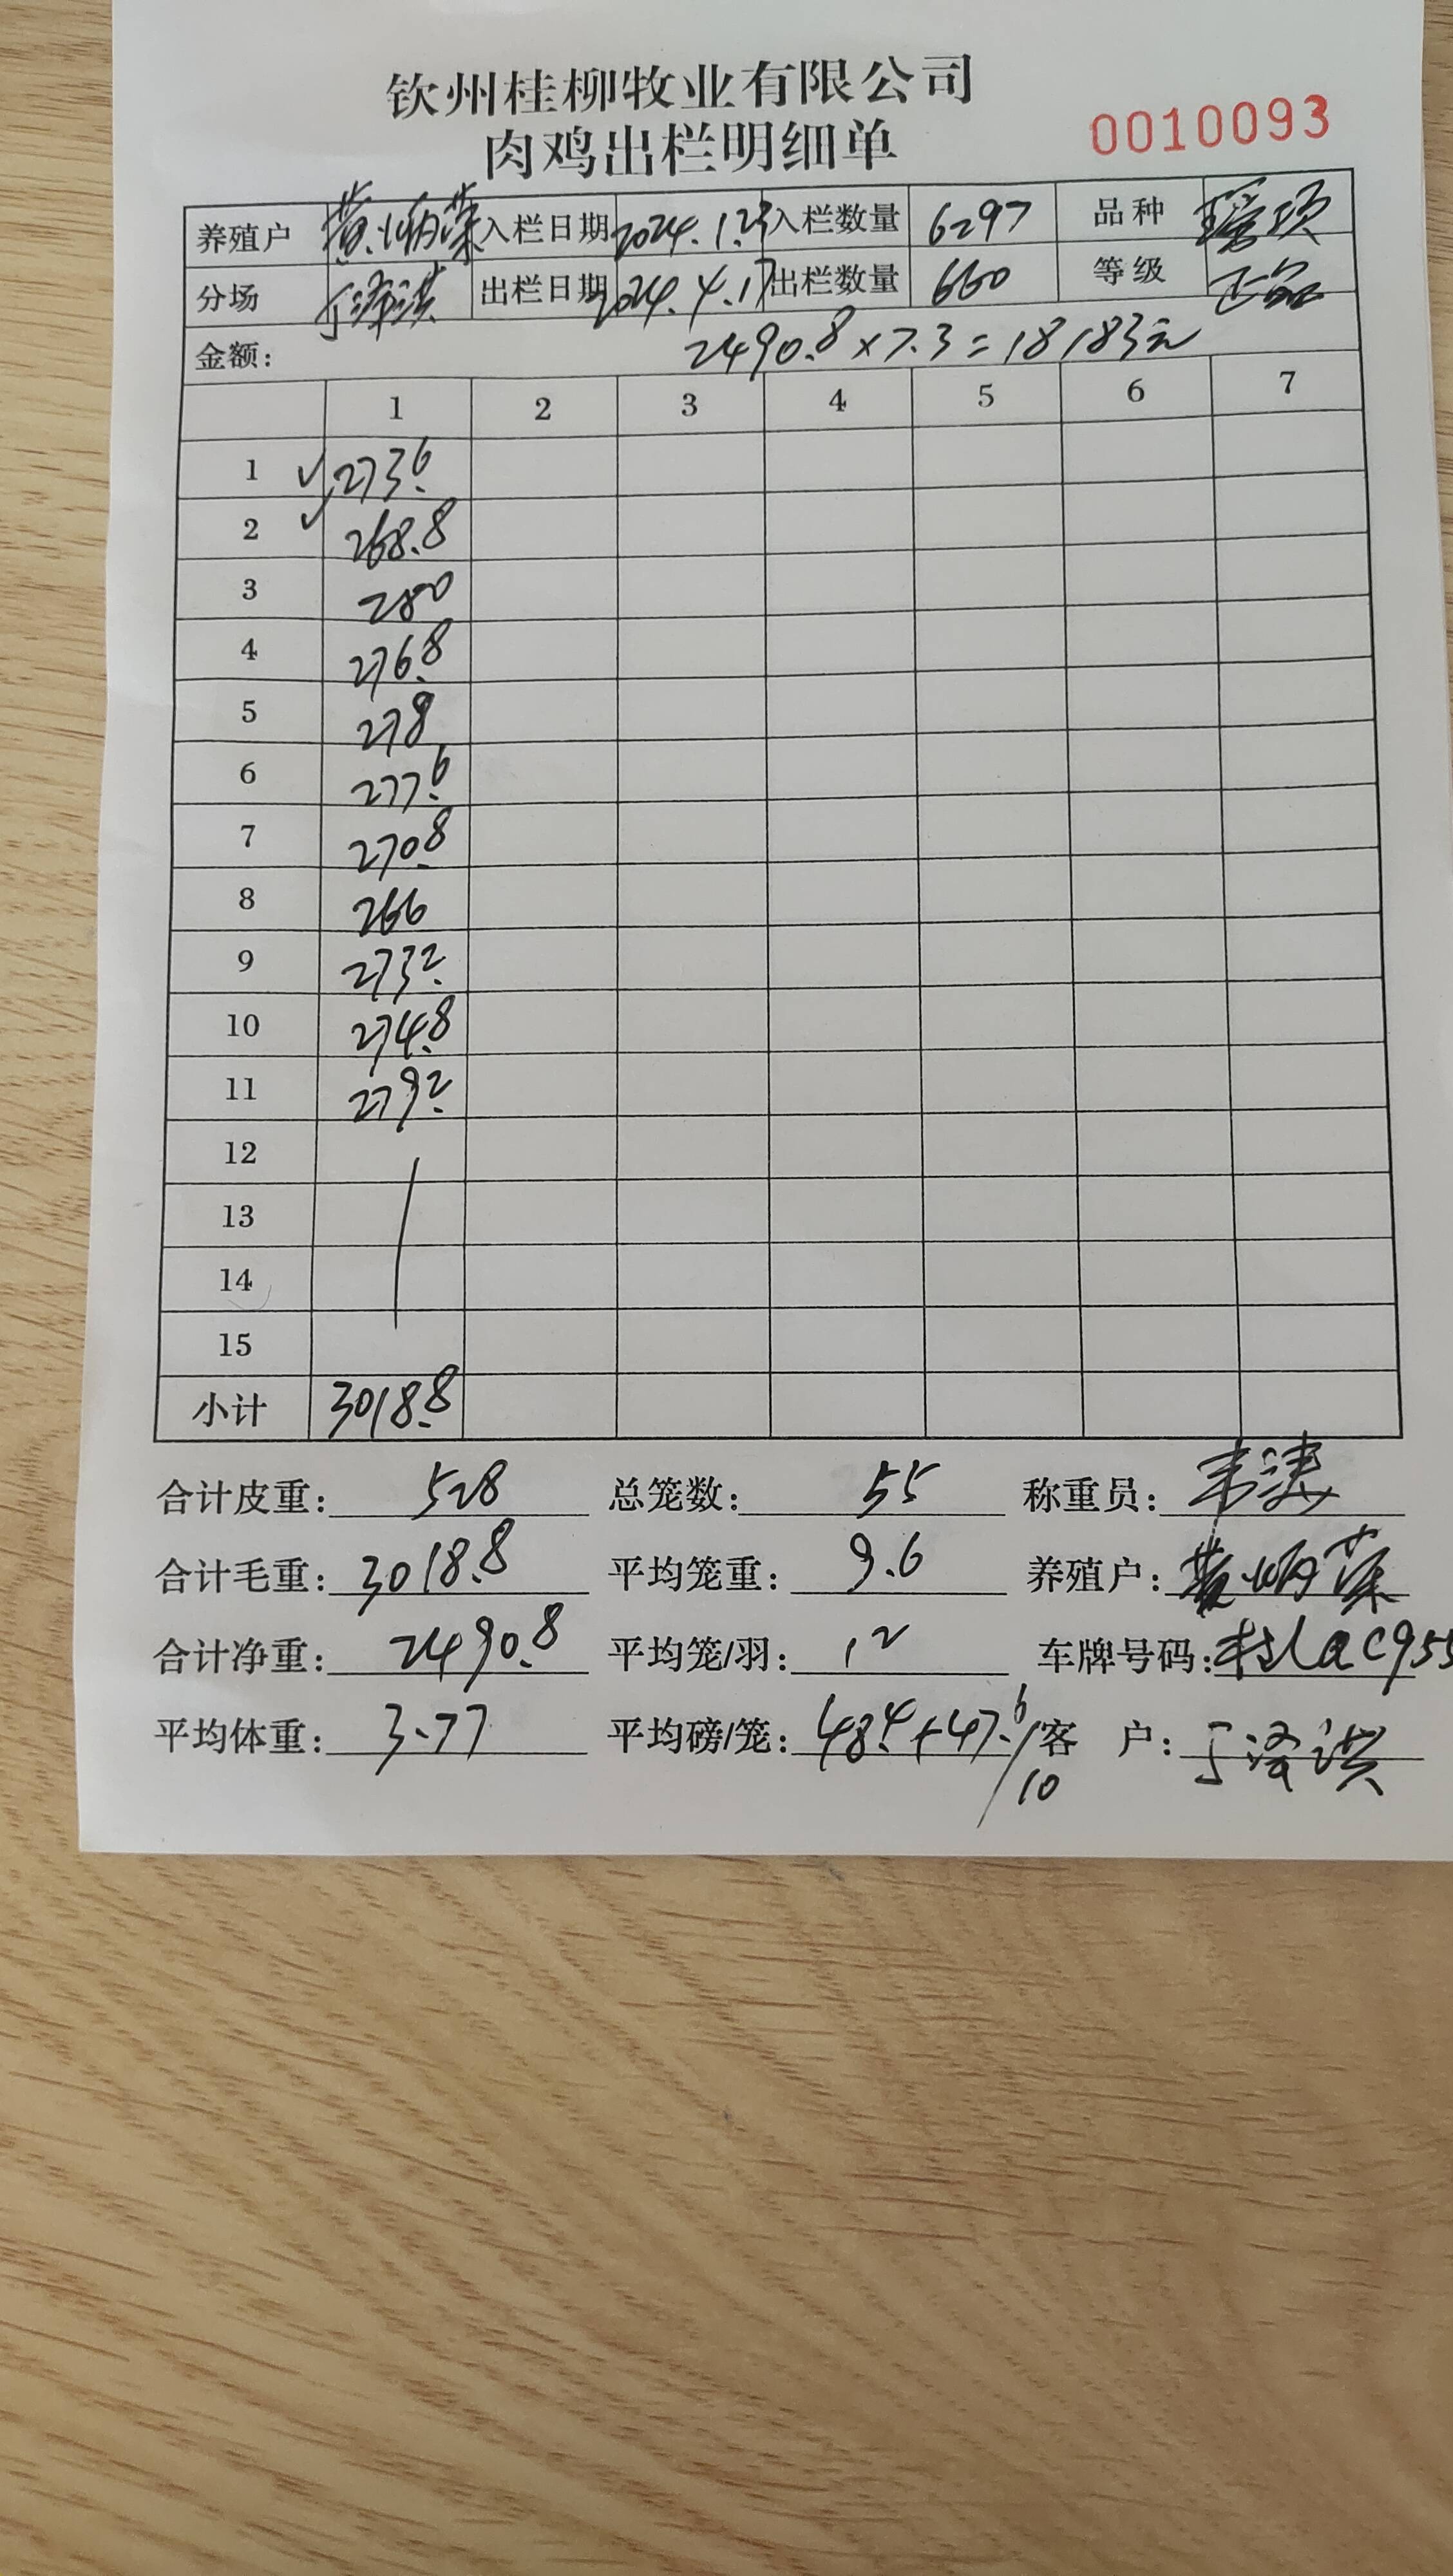 钦州桂柳牧业有限公司
肉鸡出栏明细单
0010093
养殖户 黄炳荣 入栏日期 2024.1.23 入栏数量 6297 品种 项
分场 丁泽洪 出栏日期 2024.4.17 出栏数量 660 等级 正品
金额: 2490.8×7.3=18183元
1 2 3 4 5 6 7
1 ✓ 273.6
2 ✓ 268.8
3 280
4 276.8
5 278
6 277.6
7 270.8
8 266
9 273.2
10 274.8
11 279.2
12
13
14
15
小计 3018.8
合计皮重: 528 总笼数: 55 称重员: 韦涛
合计毛重: 3018.8 平均笼重: 9.6 养殖户: 黄炳荣
合计净重: 2490.8 平均笼/羽: 12 车牌号码: 桂 C955
平均体重: 3.77 平均磅/笼: 48.4+47.6/10 客 户: 丁泽洪